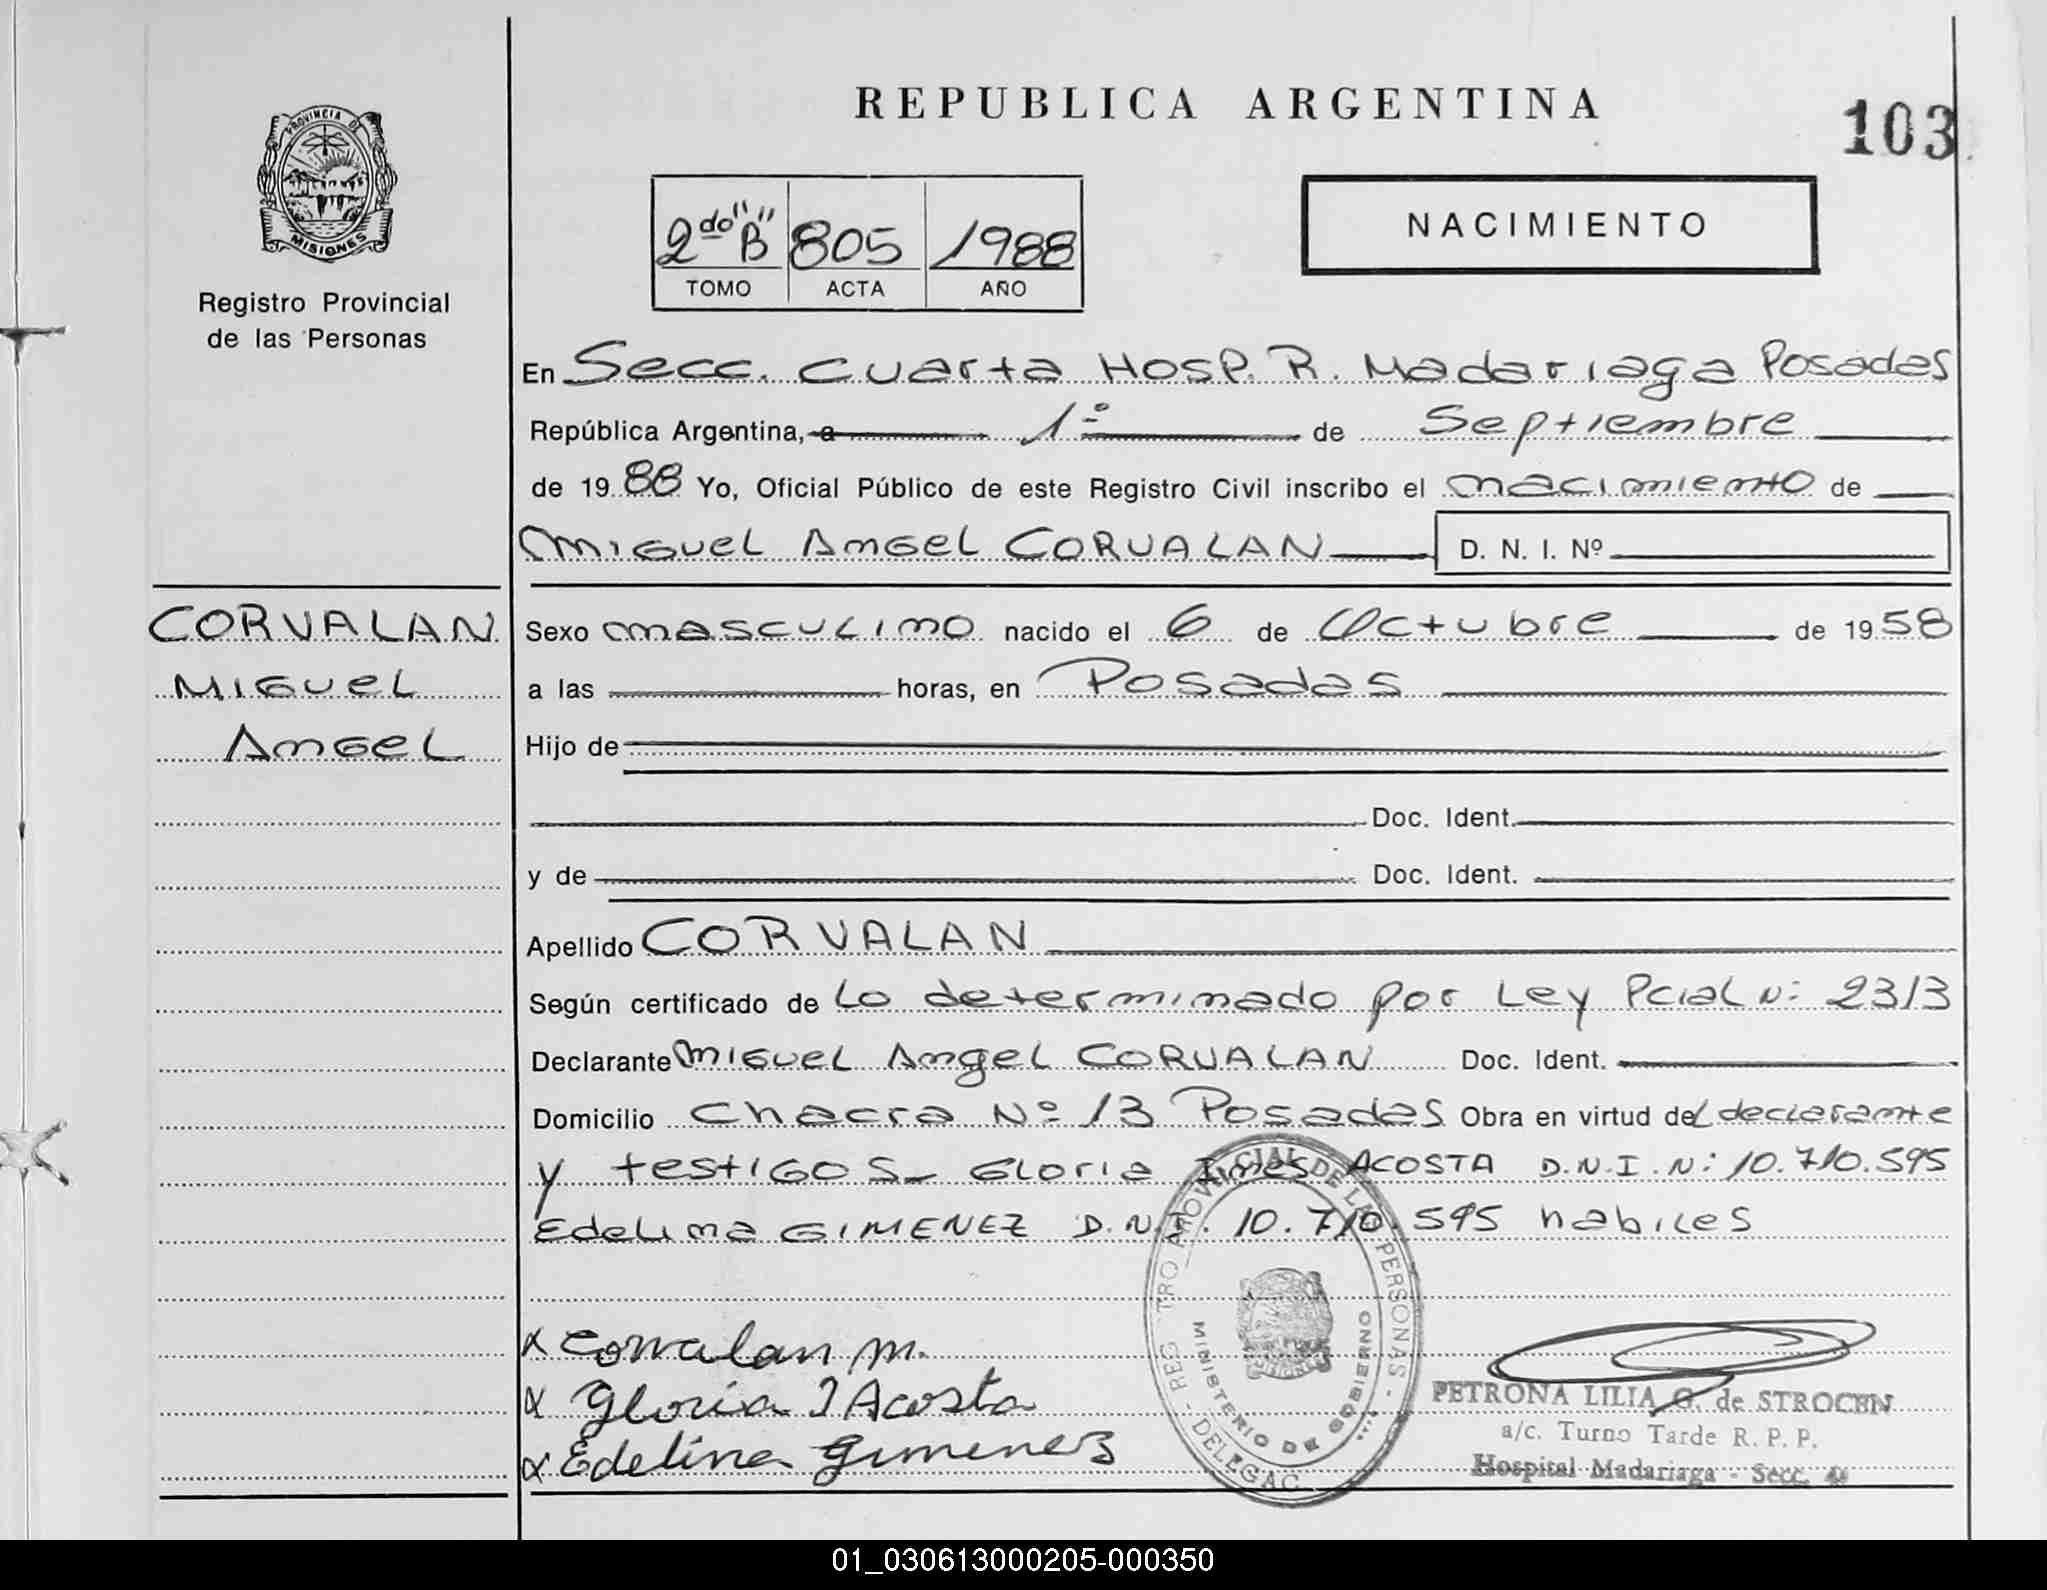 REPUBLICA ARGENTINA
103
PROVINCIA DE
MISIONES
Registro Provincial
de las Personas
2do "B" 805 1988
TOMO ACTA AÑO
NACIMIENTO
En Secc. Cuarta Hosp. R. Madariaga Posadas
República Argentina, a 1º de Septiembre
de 1988 Yo, Oficial Público de este Registro Civil inscribo el nacimiento de
Miguel Angel CORVALAN D. N. I. Nº
CORVALAN
Miguel
Angel
Sexo masculino nacido el 6 de Octubre de 1958
a las horas, en Posadas
Hijo de
Doc. Ident.
y de Doc. Ident.
Apellido CORVALAN
Según certificado de Lo determinado por Ley Pcial N: 2313
Declarante Miguel Angel CORVALAN Doc. Ident.
Domicilio Chacra Nº 13 Posadas Obra en virtud del declarante
y testigos- Gloria Ines ACOSTA D.N.I. N: 10.710.595
Edelina GIMENEZ D.N.I. 10.710.595 habiles
x Corvalan M.
x Gloria I Acosta
x Edelina Gimenez
REGISTRO PROVINCIAL DE LAS PERSONAS - DELEGAC.
MINISTERIO DE GOBIERNO
PETRONA LILIA G. de STROCEN
a/c. Turno Tarde R. P. P.
Hospital Madariaga - Secc. 4
01_030613000205-000350